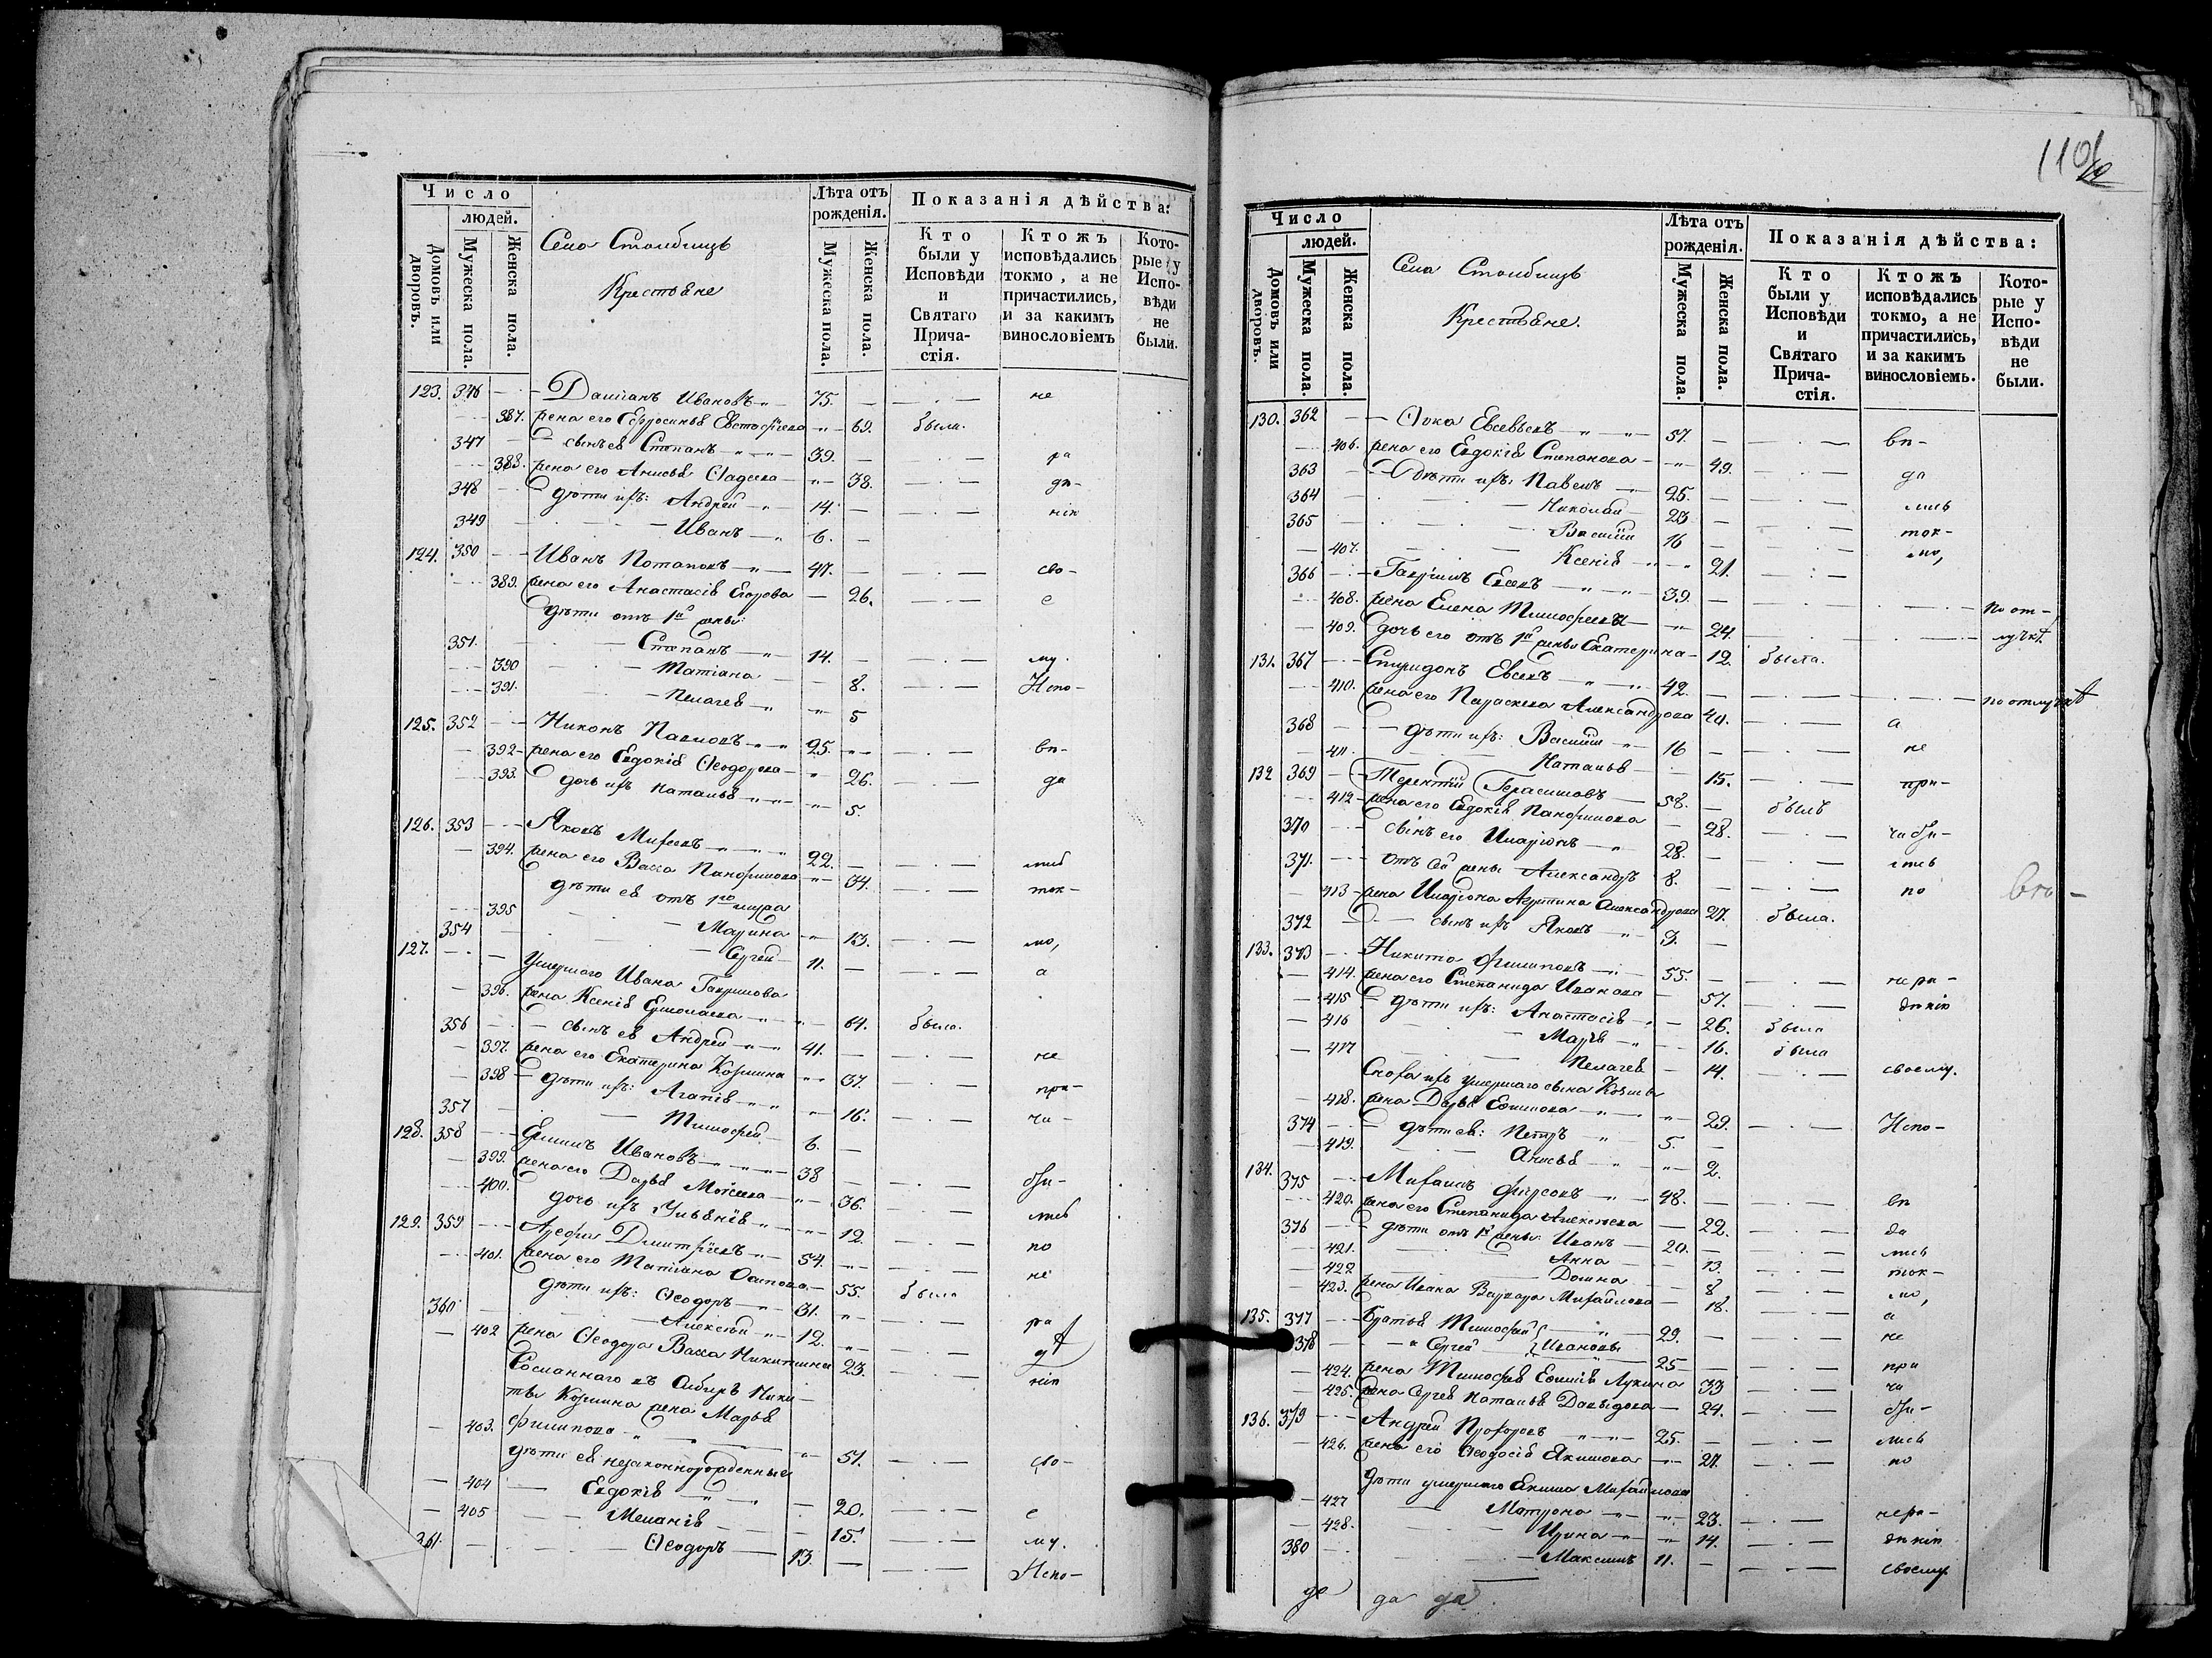 Число
людей.
Домовъ или дворовъ.
Мужеска пола.
Женска пола.
Села Столбищъ
Крестьяне
Лѣта отъ рожденія.
Мужеска пола.
Женска пола.
Показанія дѣйства:
Кто были у Исповѣди и Святаго Причастія.
Ктожъ исповѣдались токмо, а не причастились, и за какимъ винословіемъ
Которые у Исповѣди не были.
123. 346 — Даміанъ Ивановъ 75. не
387. жена его Ефросинья Евстафіева 69. была.
347 — сынъ ея Степанъ 39. ра
388. жена его Анисья Ѳадеева 38. дѣ-
348 дѣти ихъ: Андрей 14. нію
349 Иванъ 6.
124. 350 Иванъ Потаповъ 47. сво-
389. жена его Анастасія Егорова 26. е
дѣти отъ 1й жены:
351. Степанъ 14. му.
390 Матіана 8. Испо-
391. Пелагея 5
125. 352 Никонъ Павловъ 25. вѣ-
392 жена его Евдокія Ѳеодорова 26. да
393. дочь ихъ Наталья 5.
126. 353 Яковъ Михеевъ 22. лись
394. жена его Васса Панфилова 34. ток-
дѣти ея отъ 1го мужа
395 Марина 13. мо,
354 Сергей 11. а
127. Умершаго Ивана Гаврилова
396. жена Ксенія Ермолаева 64. была.
356 сынъ ея Андрей 41. не
397. жена его Екатерина Козмина 37. при-
398 дѣти ихъ: Агапія 16. ча-
357 Тимофей 6.
128. 358 Ермилъ Ивановъ 38 сти-
399. жена его Дарья Моисеева 36. лись
400. дочь ихъ Ульянія 12. по
129. 359 Арефа Димитріевъ 54. не
401. жена его Матіана Осипова 55. была
дѣти ихъ: Ѳеодоръ 31. ра
360 Алексѣй 12. дѣ
402 жена Ѳеодора Васса Никитина 23. нію
Сосланнаго въ Сибирь Ники-
ты Козмина жена Марья
403. Филипова 51. сво-
дѣти ея незаконнорожденные
404 Евдокія 20. е
405 Меланія 15. му.
361. Ѳеодоръ 13. Испо-
110
Число
людей.
Домовъ или дворовъ.
Мужеска пола.
Женска пола.
Села Столбищъ
Крестьяне.
Лѣта отъ рожденія.
Мужеска пола.
Женска пола.
Показанія дѣйства:
Кто были у Исповѣди и Святаго Причастія.
Ктожъ исповѣдались токмо, а не причастились, и за какимъ винословіемъ.
Которые у Исповѣди не были.
130. 362 Ѳока Евсевьевъ 57. вѣ-
406. жена его Евдокія Степанова 49. да
363 Дѣти ихъ: Павелъ 25. лись
364 Николай 23 ток-
365 Василій 16 мо,
407. Ксенія 21.
366 Гавріилъ Евсевъ 39. По от-
408. жена Елена Тимофеева 24. лучкѣ.
409. дочь его отъ 1й жены Екатерина 12. была.
131. 367 Спиридонъ Евсевъ 42. по отлучкѣ
410. жена его Параскева Александрова 40. а
368 дѣти ихъ: Василій 16 не
411. Наталья 15. при-
132 369 Терентій Герасимовъ 58. былъ
412 жена его Евдокія Панфилова 28. части-
370 сынъ его Иларіонъ 28. лись
371. отъ 2й жены Александръ 8. по
413 жена Иларіона Агрипина Александрова 27. была.
372 сынъ ихъ Яковъ 3.
133. 373 Никита Филиповъ 55. нера-
414. жена его Степанида Иванова 57. дѣнію
415 дѣти ихъ: Анастасія 26. была
416 Марья 16. была
417 Пелагея 14. своему.
Сноха ихъ умершаго сына Козмы
418. жена Дарья Ефимова 29. Испо-
374 дѣти ея: Петръ 5.
419. Анисья 2.
134. 375 Михаилъ Фирсовъ 48. вѣ
420. жена его Степанида Алексѣева 22. да
376 дѣти отъ 1й жены: Иванъ 20. лись
421. Анна 13. ток-
422 Домна 8 мо,
423. жена Ивана Варвара Михайлова 18. а
135. 377 Братья Тимофей 29. не
378 Сергей } Ивановы 25 при
424. жена Тимофея Ефимія Лукина 33 ча
425. жена Сергея Наталья Давыдова 24. сти-
136. 379 Андрей Прохоровъ 25. лись
426. жена его Ѳеодосія Якимова 27. по
дѣти умершаго Екима Михайлова
427 Матрона 23. нера-
428. Ирина 14. дѣнію
380 Максимъ 11. своему
да да да